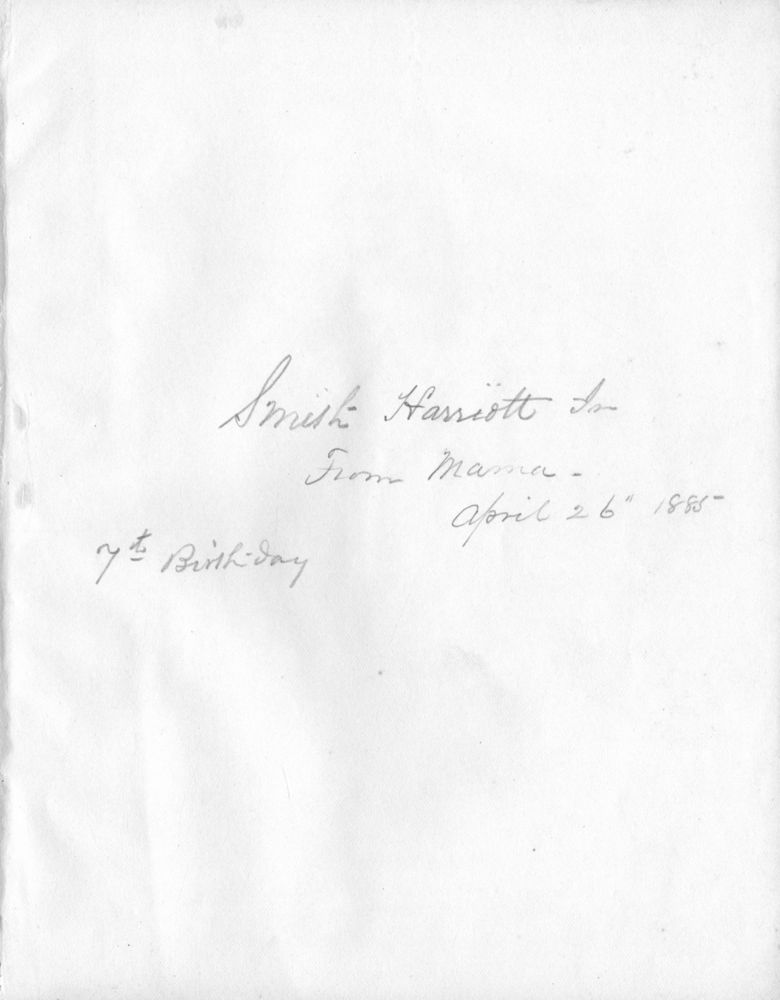 Smith Harriott Jr
From Mama -
April 26" 1885
7th Birth-day